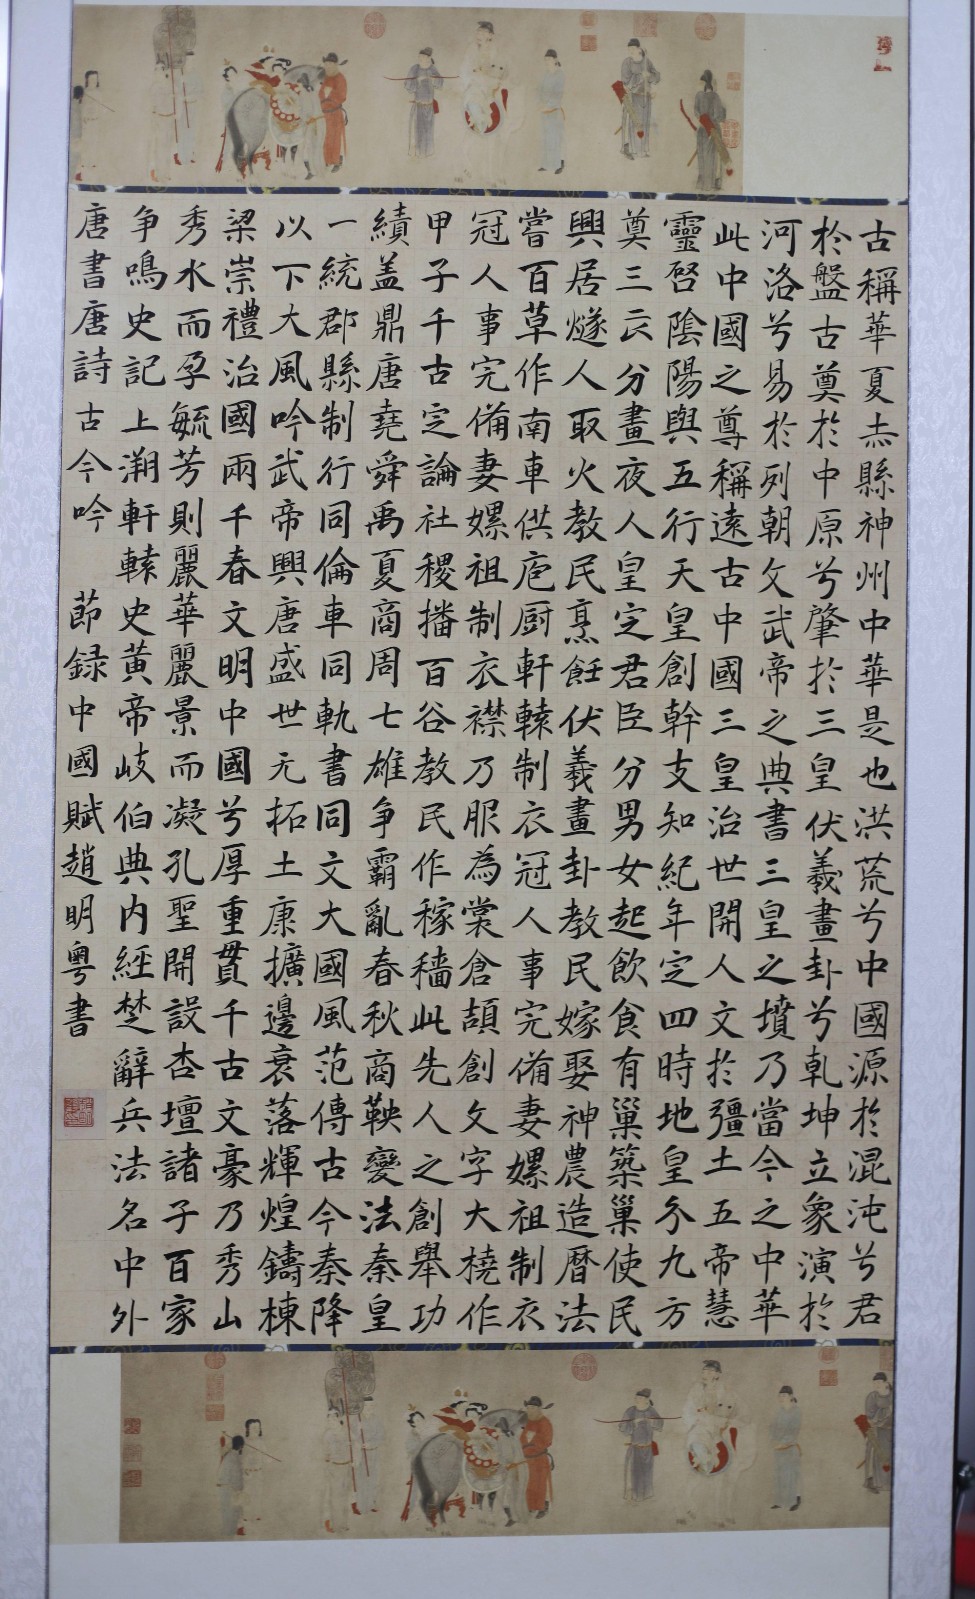 古稱華夏赤縣神州中華是也洪荒兮中國源於混沌兮君
於盤古奠於中原兮肇於三皇伏羲畫卦兮乾坤立象演於
河洛兮易於列朝文武帝之典書三皇之墳乃當今之中華
此中國之尊稱遠古中國三皇治世開人文於疆土五帝慧
靈啓陰陽與五行天皇創幹支知紀年定四時地皇分九方
奠三云分畫夜人皇定君臣分男女起飲食有巢築巢使民
興居燧人取火教民烹飪伏羲畫卦教民嫁娶神農造曆法
嘗百草作南車供庖厨軒轅制衣冠人事完備妻嫘祖制衣
冠人事完備妻嫘祖制衣襟乃服為裳倉頡創文字大橈作
甲子千古定論社稷播百谷教民作稼穡此先人之創舉功
績盖鼎唐堯舜禹夏商周七雄争霸亂春秋商鞅變法秦皇
一統郡縣制行同倫車同軌書同文大國風范傳古今秦降
以下大風吟武帝興唐盛世元拓土康擴邊衰落輝煌鑄棟
梁崇禮治國兩千春文明中國兮厚重貫千古文豪乃秀山
秀水而孕毓芳則麗華麗景而凝孔聖開設杏壇諸子百家
争鳴史記上溯軒轅史黄帝岐伯典内經楚辭兵法名中外
唐書唐詩古今吟 節録中國賦趙明粤書